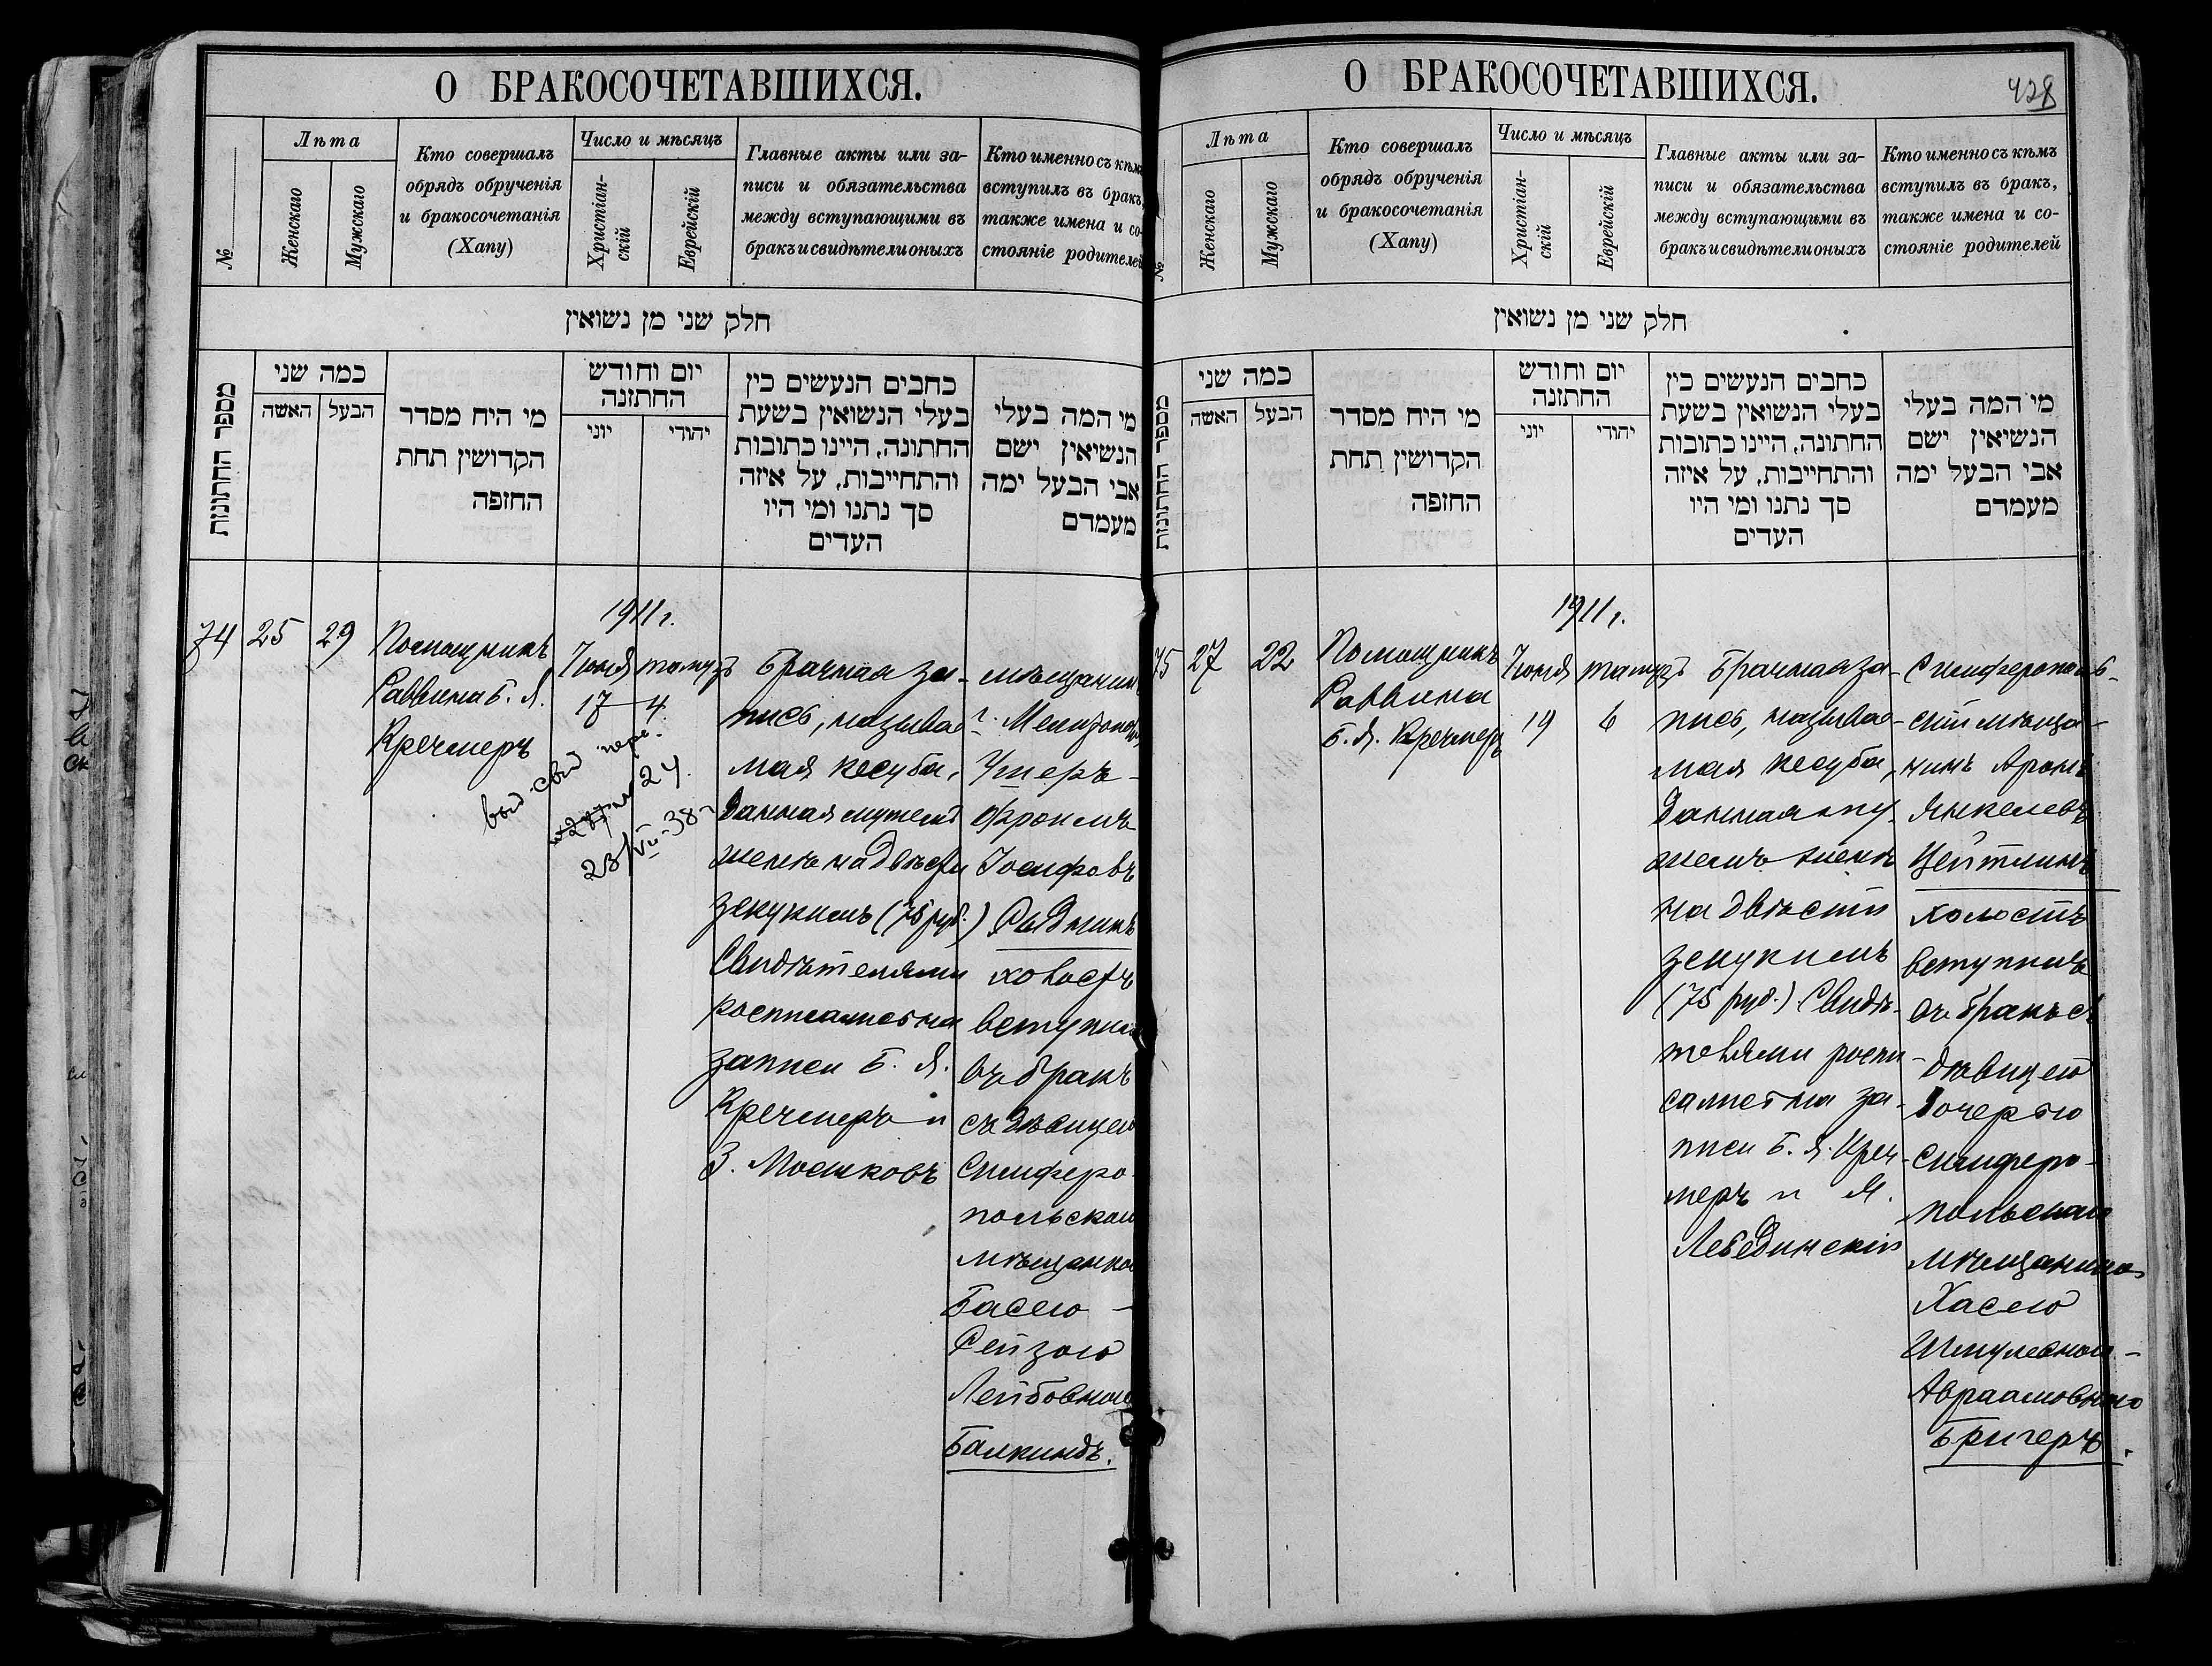 О БРАКОСОЧЕТАВШИХСЯ.
№
Лѣта
Женскаго
Мужскаго
Кто совершалъ
обрядъ обрученія
и бракосочетанія
(Хапу)
Число и мѣсяцъ
Христіан-
скій
Еврейскій
Главные акты или за-
писи и обязательства
между вступающими въ
бракъ и свидѣтели оныхъ
Кто именно съ кѣмъ
вступилъ въ бракъ,
также имена и со-
стояніе родителей
חלק שני מן נשואין
מספר החתונות
כמה שני
האשה
הבעל
מי היח מסדר
הקדושין תחת
החופה
יום וחודש
החתונה
יוני
יהודי
כתבים הנעשים כין
בעלי הנשואין בשעת
החתונה, היינו כתובות
והתחייבות, על איזה
סך נתנו ומי היו
העדים
מי המה בעלי
הנשיאין ישם
אבי הבעל ימה
מעמדם
74
25
29
Помощникъ
Раввина Б. Я.
Кречмеръ
1911 г.
Іюня
17
тамузъ
4.
выд. свид.
24
23/VII-38 г
Брачная за-
пись, называе-
мая кесуба,
данная мужемъ
женѣ на двѣсти
зекукимъ (75 руб.)
Свидѣтелями
росписались на
записи Б. Я.
Кречмеръ и
З. Мошковъ
мѣщанинъ
г. Мелитополя
Ушеръ-
Фроимъ
Іосифовъ
Рывкинъ
холостъ
вступилъ
въ бракъ
съ дѣвицей
Симферо-
польской
мѣщанкой
Басею-
Рейзою
Лейбовною
Балкиндъ.
О БРАКОСОЧЕТАВШИХСЯ.
428
№
Лѣта
Женскаго
Мужскаго
Кто совершалъ
обрядъ обрученія
и бракосочетанія
(Хапу)
Число и мѣсяцъ
Христіан-
скій
Еврейскій
Главные акты или за-
писи и обязательства
между вступающими въ
бракъ и свидѣтели оныхъ
Кто именно съ кѣмъ
вступилъ въ бракъ,
также имена и со-
стояніе родителей
חלק שני מן נשואין
מספר החתונות
כמה שני
האשה
הבעל
מי היח מסדר
הקדושין תחת
החופה
יום וחודש
החתונה
יוני
יהודי
כתבים הנעשים כין
בעלי הנשואין בשעת
החתונה, היינו כתובות
והתחייבות, על איזה
סך נתנו ומי היו
העדים
מי המה בעלי
הנשיאין ישם
אבי הבעל ימה
מעמדם
75
27
22
Помощникъ
Раввина
Б. Я. Кречмеръ
1911 г.
Іюня
19
тамузъ
6
Брачная за-
пись, называе-
мая кесуба,
данная му-
жемъ женѣ
на двѣсти
зекукимъ
(75 руб.) Свидѣ-
телями роспи-
сались на за-
писи Б. Я. Креч-
меръ и М.
Лебединскій
Симферополь-
скій мѣща-
нинъ Аронъ
Янкелевъ
Цейтлинъ
холостъ
вступилъ
въ бракъ съ
дѣвицею
дочерью
симферо-
польскаго
мѣщанина
Хасею
Авраамовною
Бригеръ.